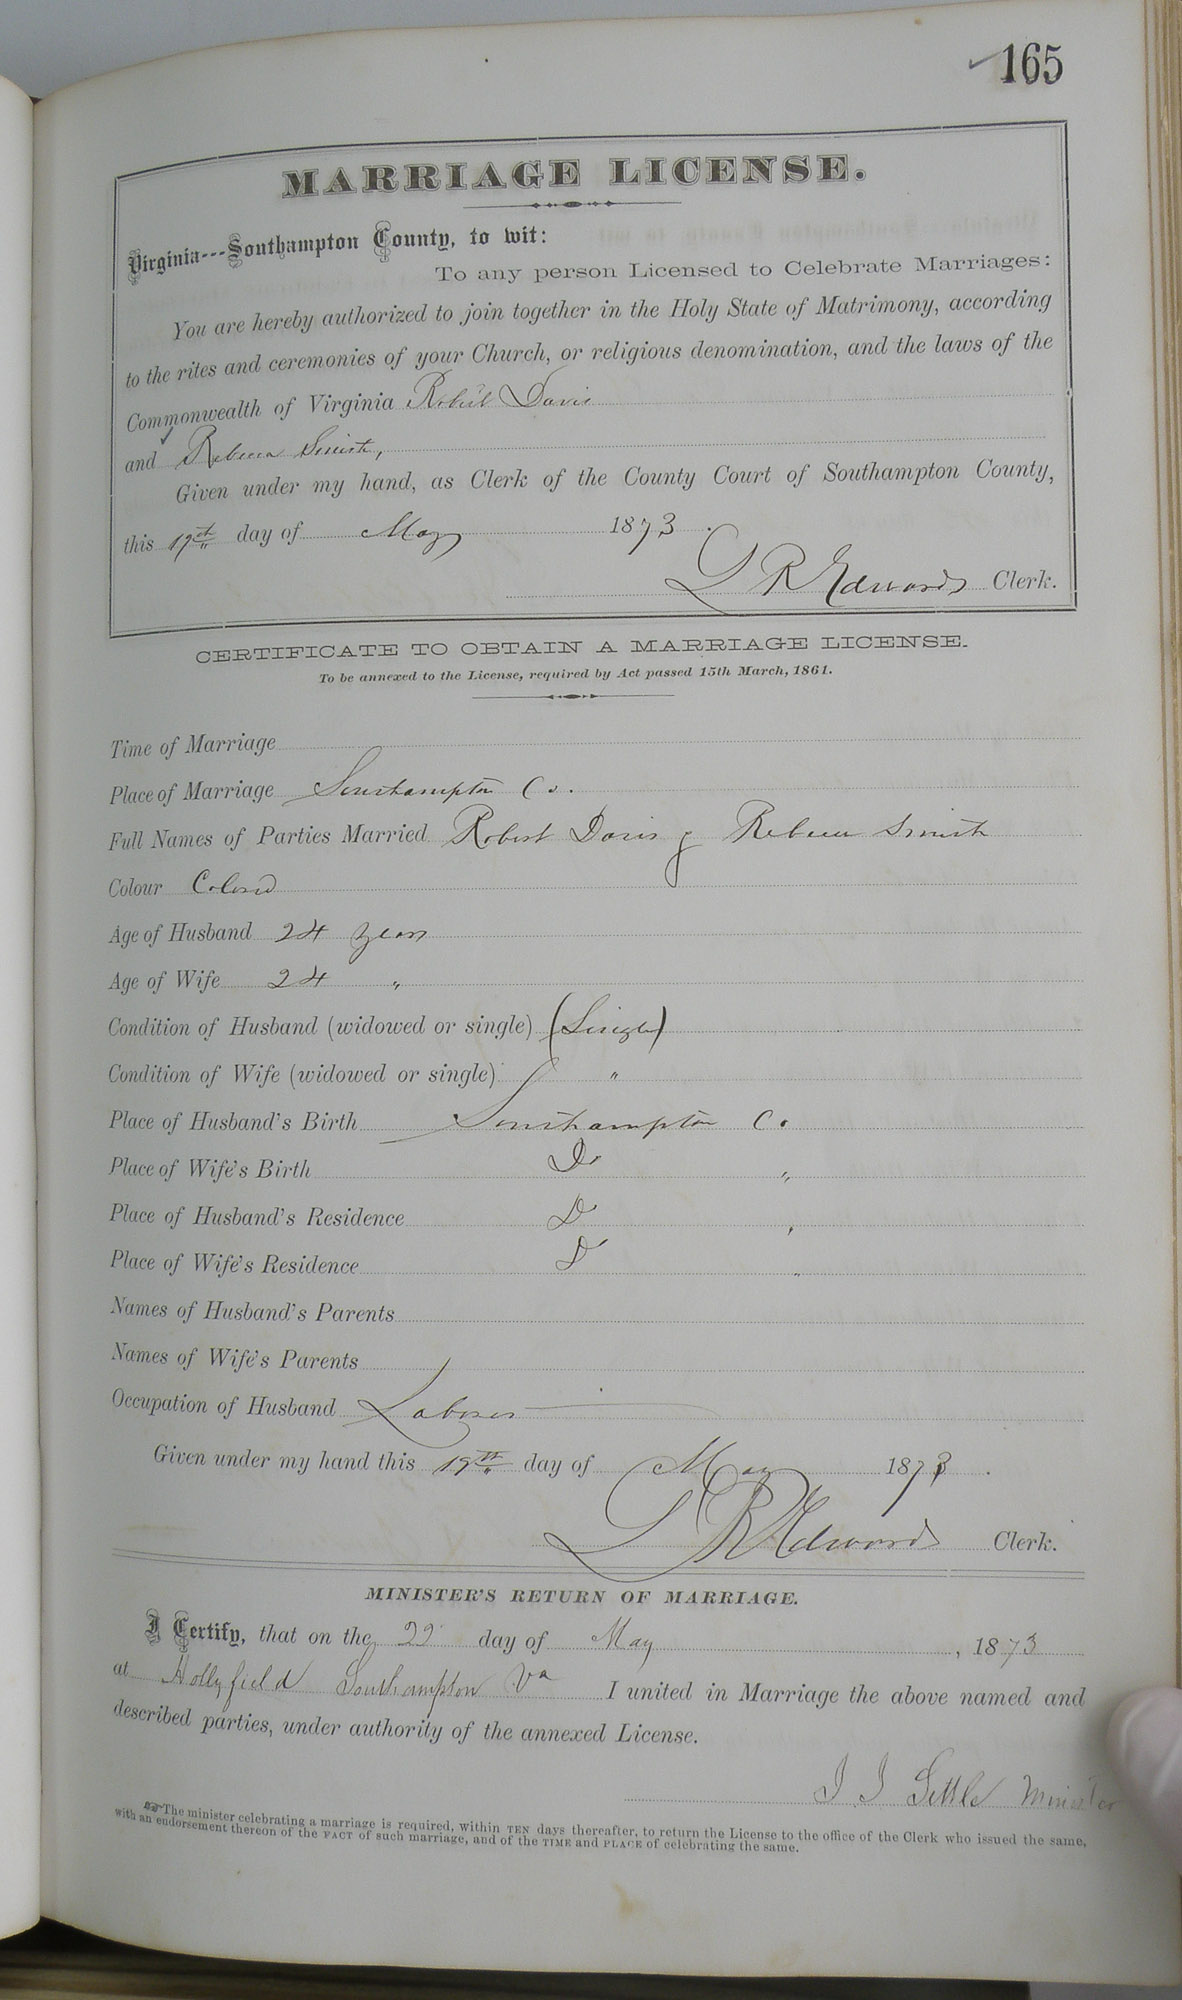 165
MARRIAGE LICENSE.
Virginia---Southampton County, to wit:
To any person Licensed to Celebrate Marriages:
You are hereby authorized to join together in the Holy State of Matrimony, according
to the rites and ceremonies of your Church, or religious denomination, and the laws of the
Commonwealth of Virginia Robert Davis
and Rebecca Smith,
Given under my hand, as Clerk of the County Court of Southampton County,
this 19th day of May 1873.
L R Edwards Clerk.
CERTIFICATE TO OBTAIN A MARRIAGE LICENSE.
To be annexed to the License, required by Act passed 15th March, 1861.
Time of Marriage
Place of Marriage Southampton Co.
Full Names of Parties Married Robert Davis & Rebecca Smith
Colour Colored
Age of Husband 24 years
Age of Wife 24 "
Condition of Husband (widowed or single) (Single)
Condition of Wife (widowed or single) "
Place of Husband's Birth Southampton Co
Place of Wife's Birth Do "
Place of Husband's Residence Do "
Place of Wife's Residence Do "
Names of Husband's Parents
Names of Wife's Parents
Occupation of Husband Laborer
Given under my hand this 19th day of May 1873.
L R Edwards Clerk.
MINISTER'S RETURN OF MARRIAGE.
I Certify, that on the 22 day of May, 1873
at Hollyfield Southampton Va I united in Marriage the above named and
described parties, under authority of the annexed License.
J J Settle Minister
The minister celebrating a marriage is required, within TEN days thereafter, to return the License to the office of the Clerk who issued the same,
with an endorsement thereon of the FACT of such marriage, and of the TIME and PLACE of celebrating the same.